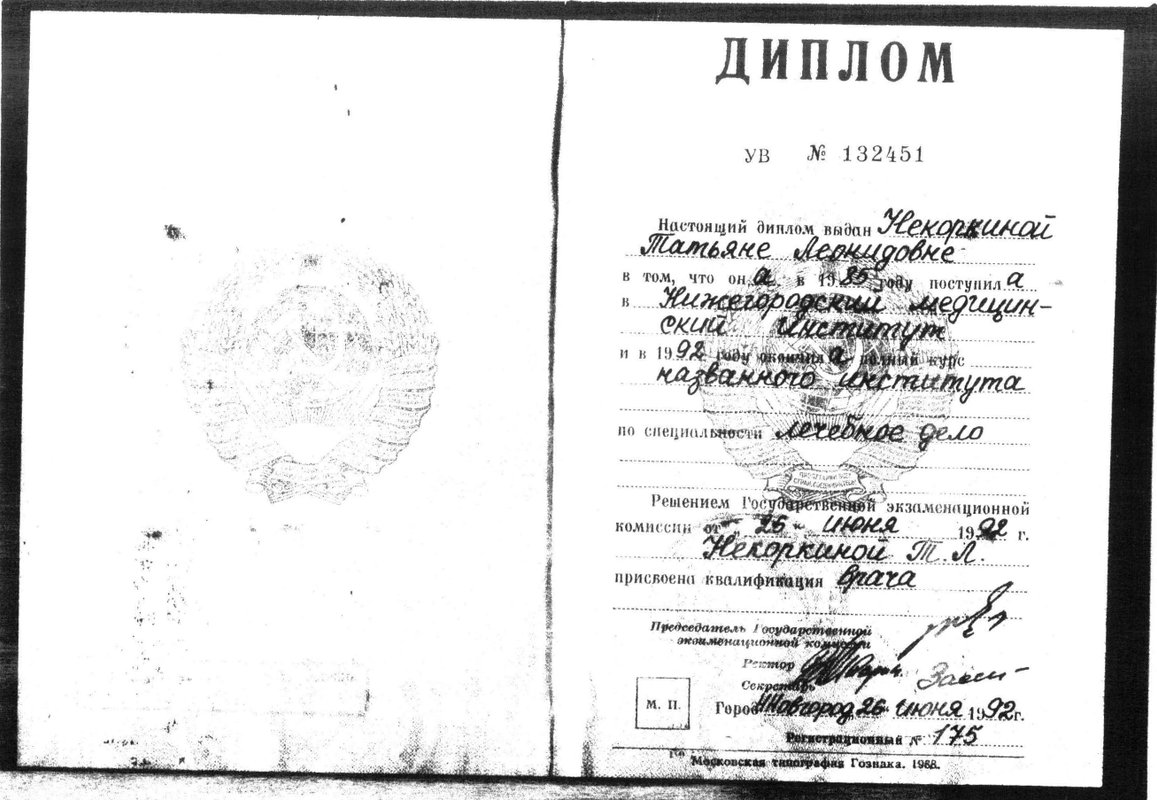 ДИПЛОМ
УВ № 132451
Настоящий диплом выдан Некоркиной
Татьяне Леонидовне
в том, что он а в 1985 году поступил а
в Нижегородский медицин-
ский институт
и в 1992 году окончил а полный курс
названного института
по специальности лечебное дело
Решением Государственной экзаменационной
комиссии от „ 26 “ июня 1992 г.
Некоркиной Т. Л.
присвоена квалификация врача
Председатель Государственной
экзаменационной комиссии
Ректор
Секретарь
М. П.
Город Н Новгород 26 июня 1992 г.
Регистрационный № 175
Московская типография Гознака. 1988.